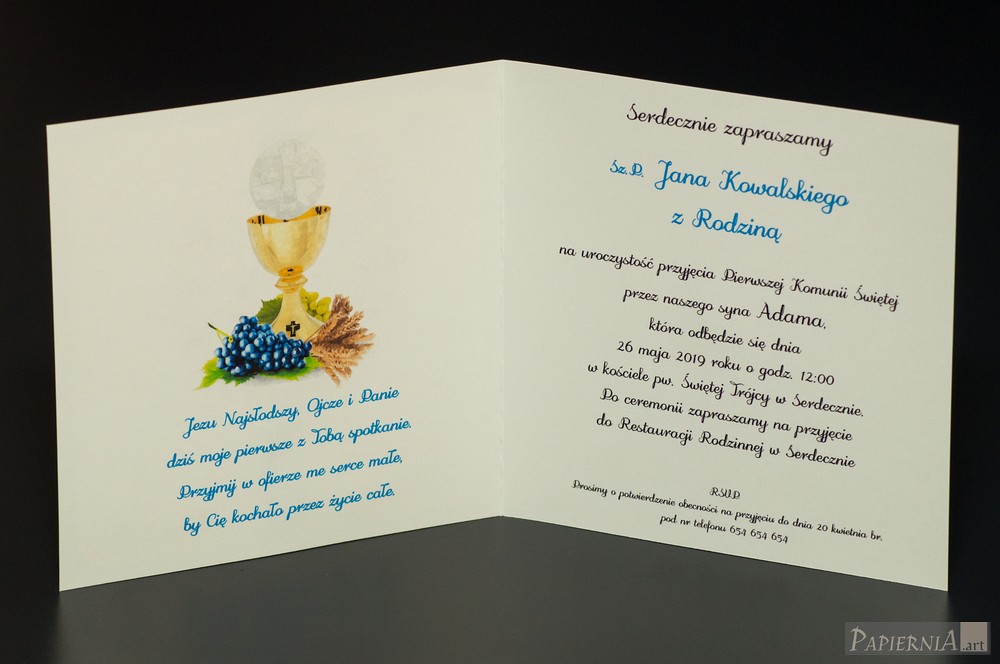 Jezu Najsłodszy, Ojcze i Panie
dziś moje pierwsze z Tobą spotkanie.
Przyjmij w ofierze me serce małe,
by Cię kochało przez życie całe.
Serdecznie zapraszamy
Sz.P. Jana Kowalskiego
z Rodziną
na uroczystość przyjęcia Pierwszej Komunii Świętej
przez naszego syna Adama,
która odbędzie się dnia
26 maja 2019 roku o godz. 12:00
w kościele pw. Świętej Trójcy w Serdecznie.
Po ceremonii zapraszamy na przyjęcie
do Restauracji Rodzinnej w Serdecznie
R.S.V.P.
Prosimy o potwierdzenie obecności na przyjęciu do dnia 20 kwietnia br.
pod nr telefonu 654 654 654
PAPIERNIA.art